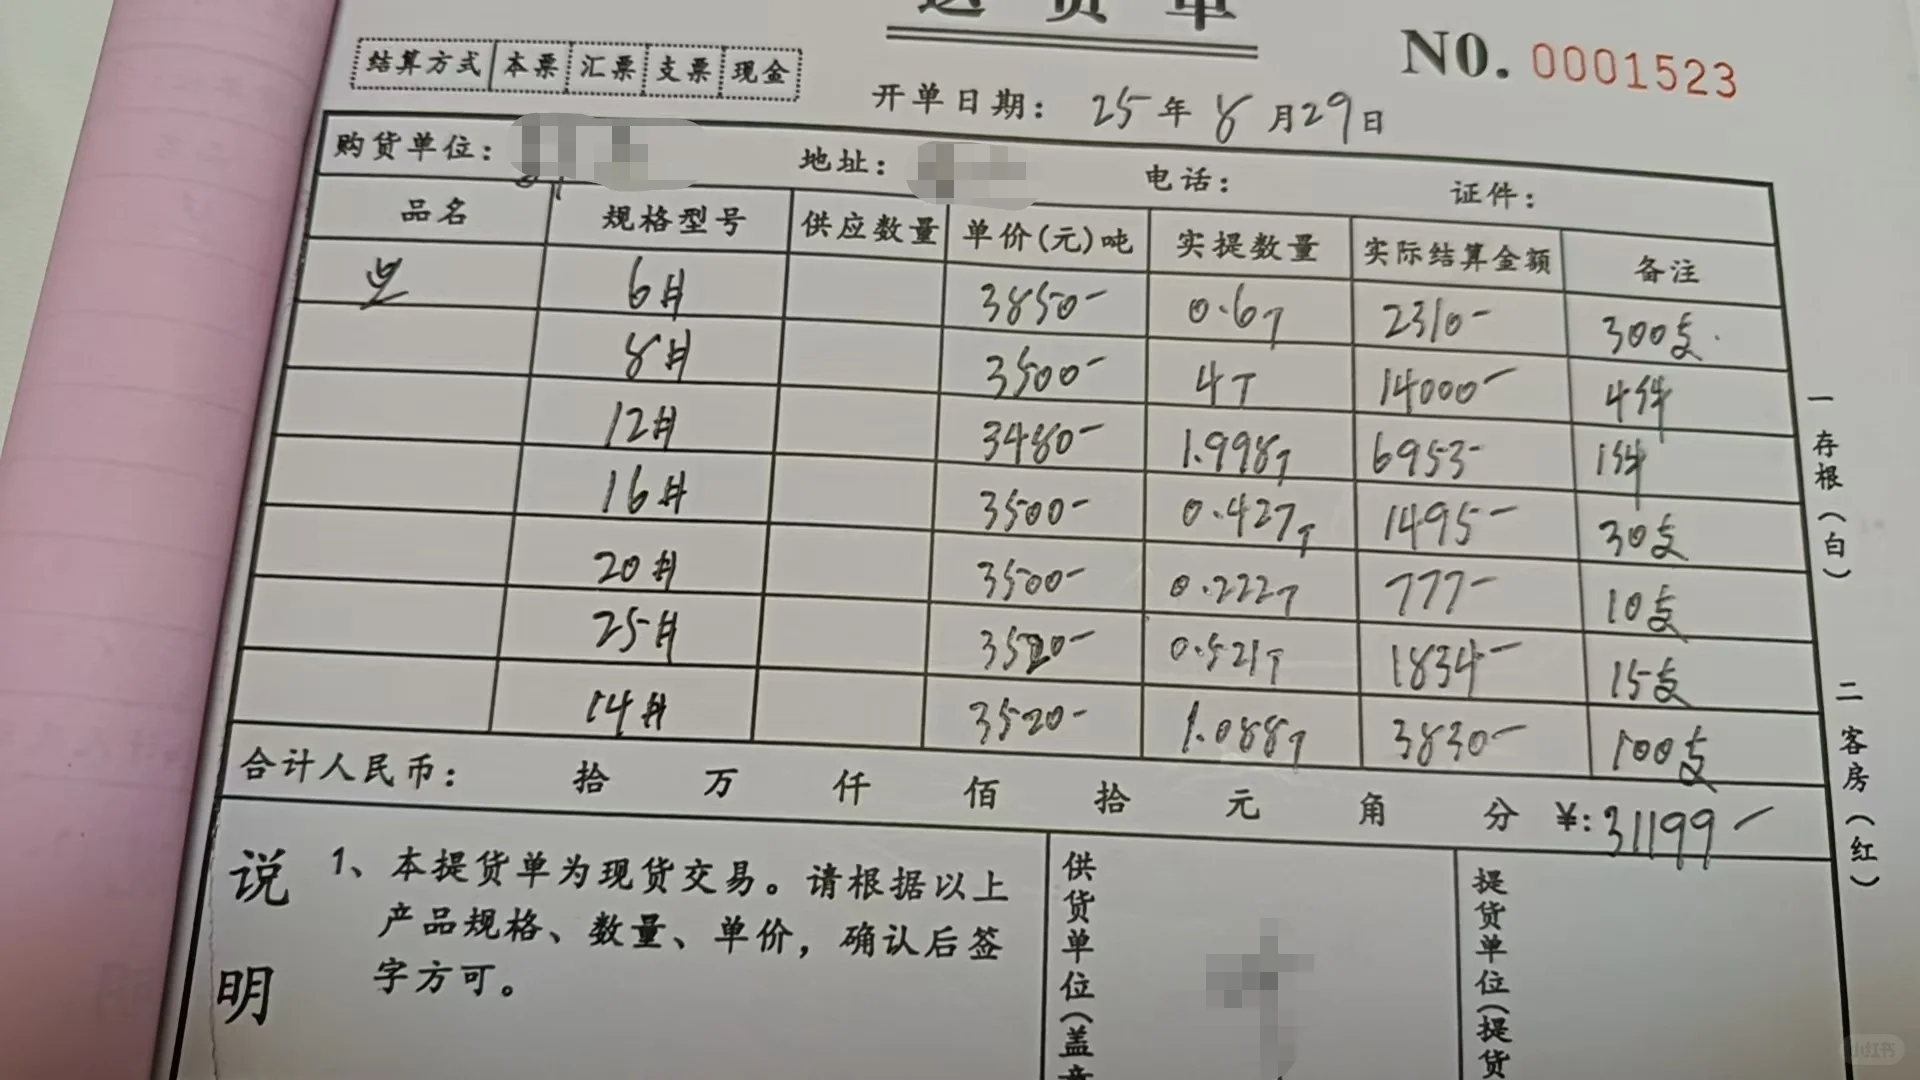 送货单
NO. 0001523
结算方式 本票 汇票 支票 现金
开单日期: 25年8月29日
购货单位: 地址: 电话: 证件:
品名 规格型号 供应数量 单价(元)吨 实提数量 实际结算金额 备注
6# 3850- 0.6T 2310- 300支
8# 3500- 4T 14000- 4件
12# 3480- 1.998T 6953- 1件
16# 3500- 0.427T 1495- 30支
20# 3500- 0.222T 777- 10支
25# 3520- 0.521T 1834- 15支
14# 3520- 1.088T 3830- 100支
合计人民币: 拾 万 仟 佰 拾 元 角 分 ¥:31199-
说明
1、本提货单为现货交易。请根据以上
产品规格、数量、单价，确认后签
字方可。
供货单位(盖章
提货单位(提货
一存根(白)
二客房(红)
小红书